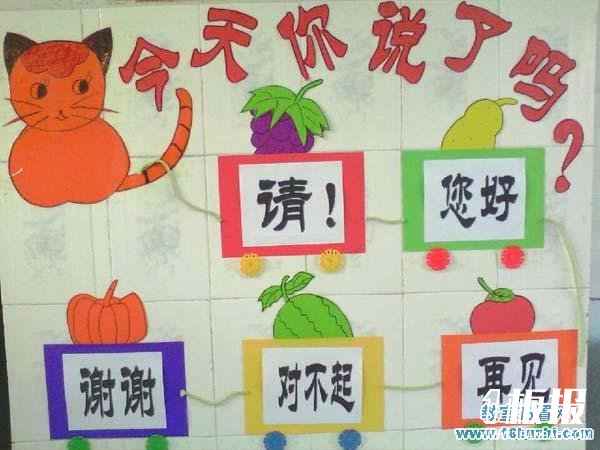 今天你说了吗？
请！
您好
谢谢
对不起
再见
板报
www.16buzhi.com